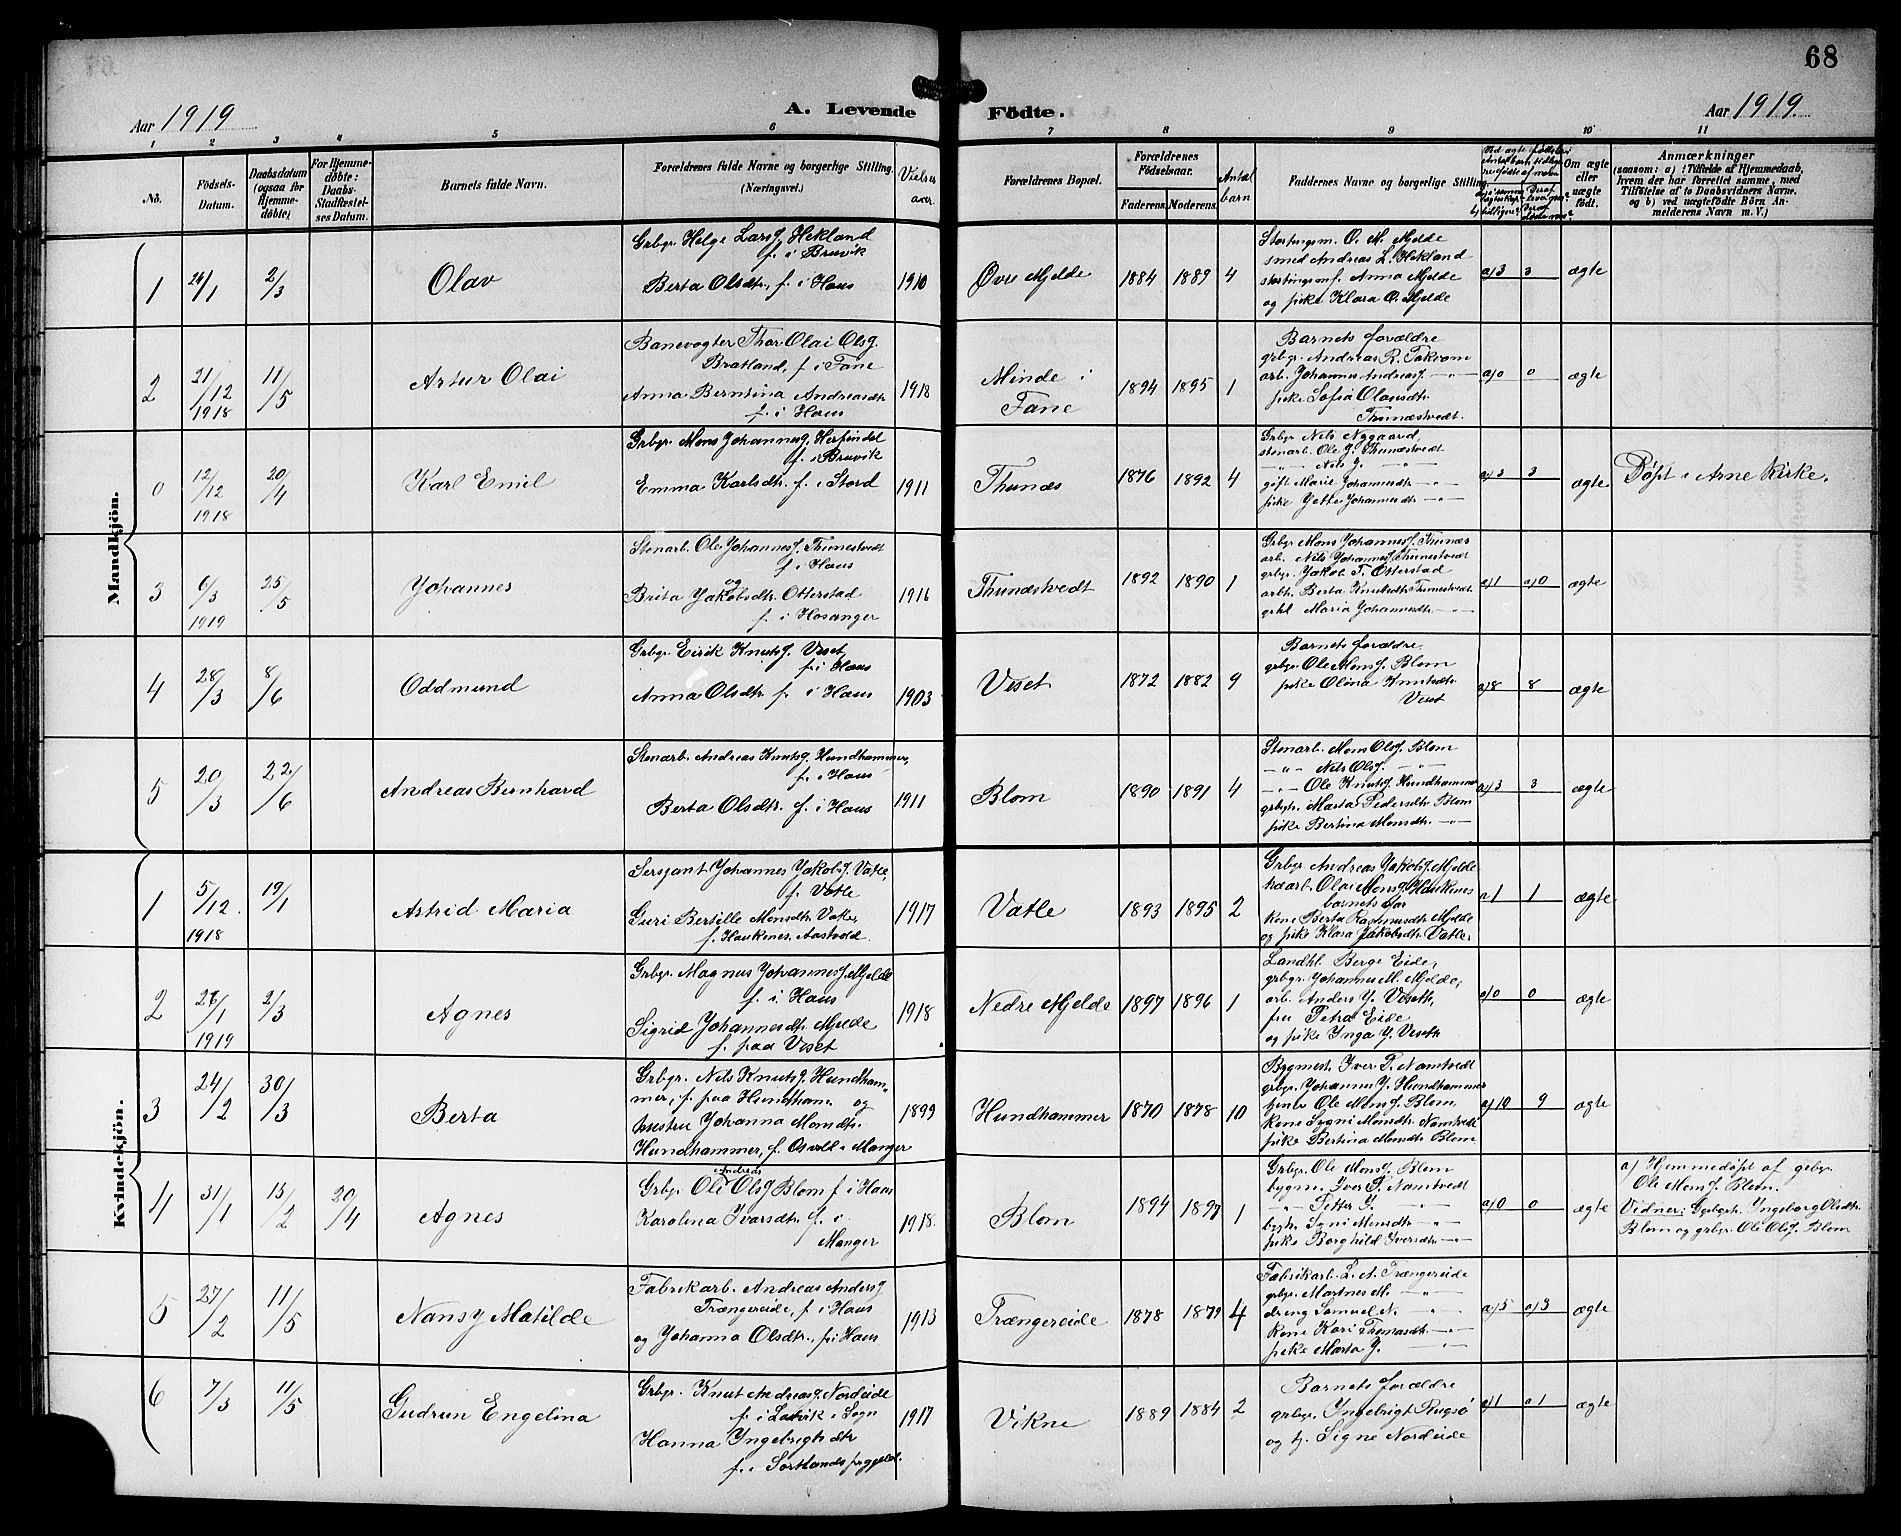 68
Aar 1919
A. Levende
Födte.
Aar 1919.
1 2 3 4 5 6 7 8 9 10 11
No.
Födsels-
Datum.
Daabsdatum
(ogsaa for
Hjemme-
döbte)
For Hjemme-
döbte:
Daabs-
Stadfæstel-
ses Datum.
Barnets fulde Navn.
Forældrenes fulde Navne og borgerlige Stilling.
(Næringsvei.)
Vielses
aar.
Forældrenes Bopæl.
Forældrenes
Födselsaar.
Faderens. Moderens.
Antal
barn
Faddernes Navne og borgerlige Stilling.
Om ægte
eller
uægte
födt.
Anmærkninger
(saasom: a) i Tilfælde af Hjemmedaab,
hvem der har forrettet samme, med
Tilföielse af to Daabsvidners Navne.
og b) ved uægtefödte Börn An-
melderens Navn m. V.)
Mandkjön.
1
26/1
2/3
Olav
Grbgr. Helge Larsf. Hekland
f. i Bruvik
Berta Olsdtr. f. i Haus
1910
Øvre Mjelde
1884 1889 4
Stortingsm. O. M. Mjelde
smed Andreas L. Hekland
stortingsmf. Anna Mjelde
og pike Klara O. Mjelde
a)3 3 ægte
2
21/12
1918
11/5
Artur Olai
Banevogter Thor Olai Olsf.
Bratland, f. i Fane
Anna Berntina Andreasdtr
f. i Haus
1918
Minde i
Fane
1894 1895 1
Barnets forældre
grbgr. Andreas R. Takvam
arb. Johannes Andreasf. -"-
pike Sofia Olausdtr.
Thunæstvedt.
a)0 0 ægte
0
12/12
1918
20/4
Karl Emil
Grbgr. Mons Johannesf. Herfindal
f. i Bruvik
Emma Karlsdtr. f. i Stord
1911
Thunæs
1876 1892 4
Grbgr. Nels Nygaard,
stenarb. Ole J. Thunestvedt
-"- Nels J. -"-
gift Marie Johannesdtr. -"-
pike Jette Johannesdtr. -"-
a)3 3 ægte.
Døpt i Arne Kirke.
3
6/3
1919
25/5
Johannes
Stenarb. Ole Johannesf. Thunestvedt
f. i Haus
og
Brita Jakobsdtr. Otterstad
f. i Hosanger
1916
Thunæstvedt
1892 1890 1
Grbgr. Mons Johannesf. Thunæs
arb. Nils Johannesf. Thunestvedt
grbgr. Jakob T. Otterstad
arb. Berta Knutsdtr. Thunestvedt
Maria Johannesdtr. -"-
a)1 a)0 ægte
4
28/3
8/6
Oddmund
Grbgr. Eirik Knutsf. Veset,
f. i Haus
Anna Olsdtr. f. i Haus
1903
Veset
1872 1882 9
Barnets forældre,
grbgr. Ole Monsf. Blom
pike Olina Knutsdtr.
Veset
a)8 8 ægte
5
20/3
22/6
Andreas Bernhard
Stenarb. Andreas Knutsf. Hundhammer,
f. i Haus
Berta Olsdtr. f. i Haus
1911
Blom
1890 1891 4
Stenarb. Mons Olsf. Blom
-"- Nils Olsf. -"-
-"- Ole Knutsf. Hundhammer
grbgr. Marta Pedersdtr. Blom
pike Bertina Monsdtr. -"-
a)3 3 ægte
Kvindekjön.
1
5/12.
1918
19/1
Astrid Maria
Sersjant Johannes Jakobsf. Vatle,
f. Vatle
Guri Bertille Monsdtr. Vatle,
f. Haukenes, Aastvedt.
1917
Vatle
1893 1895 2
Grbgr. Andreas Jakobsf. Mjelde
Olai Monsf. Haukenes
barnets far
kone Berta Rasmusdtr. Mjelde
og pike Klara Jakobsdtr. Vatle.
a)1 1 ægte
2
1919
2/3
Agnes
Grbgr. Magnus Johannesf. Mjelde
f. i Haus
Sigrid Johannesdtr. Mjelde
f. paa Veset
1918
Nedre Mjelde
1897 1896 1
Landhl. Berge Eide,
grbgr. Johannes M. Mjelde,
arb. Anders J. Veseth,
fru Petra Eide
og pike Inga J. Veseth
a)0 0 ægte
3
24/2
30/3
Berta
Grbgr. Nils Knutsf. Hundham-
mer, f. paa Hundham. og
hustru Johanna Monsdtr.
Hundhammer, f. Osvoll i Manger
1899
Hundhammer
1870 1878 10
Bygmest. Iver P. Namtvedt
grbgr. Johannes J. Hundhammer
tjener Ole Monsf. Blom,
kone Sygni Monsdtr. Namtvedt
pike Bertina Monsdtr. Blom
a)10 9 ægte
4
31/1
15/2
20/4
Agnes
Andreas
Grbgr. Ole Olsf Blom f. i Haus
Karolina Ivarsdtr. f. i
Manger
1918.
Blom
1894 1897 1
Grbgr. Ole Monsf. Blom
bygm. Iver P. Namtvedt
-"- Petter J. -"-
bygm. Sygni Monsdtr. -"-
pike Borghild Iversdtr. -"-
a)0 0 ægte
a) Hjemmedøpt af grbgr.
Ole Monsf. Blom.
Vidner: Ingeborg Olsdtr.
Blom og grbgr. Ole Olsf. Blom
5
27/2
11/5
Nansy Matilde
Fabrikarb. Andreas Andersf
Trængereide, f. i Haus
og Johanna Olsdtr., f. i Haus
1913
Trængereide
1878 1879 4
Fabrikarb. L. A. Trængereide
grbgr. Martnes M. -"-
dreng Samuel N. -"-
kone Kari Thomasdtr. -"-
pike Marta J. -"-
a)5 a)3 ægte
6
7/3
11/5
Gudrun Engelina
Grbgr. Knut Andreasf. Nordeide
f. i Lavik i Sogn
Hanna Ingebrigtsdtr
f. i Sortlands prgjeld.
1917
Vikne
1889 1884 2
Barnets forældre
grbgr. Ingebrigt Rugsø
og tj. Signe Nordeide
a)1 a)1 ægte